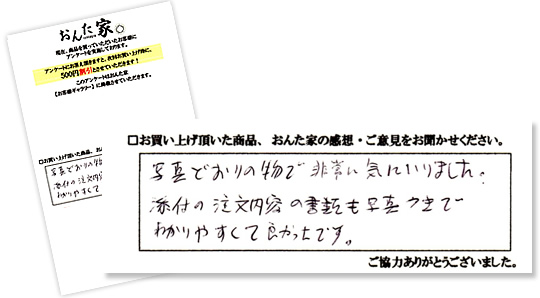 おんた家。
現在、商品を買っていただいたお客様に
アンケートを実施しております。
アンケートにお答え頂きますと、次回お買い上げ時に、
500円割引とさせていただきます！
このアンケートはおんた家
【お客様ギャラリー】に掲載させていただきます。
□お買い上げ頂いた商品、お
写真どおりの物
添付の注文内
わかりやすくて
□お買い上げ頂いた商品、おんた家の感想・ご意見をお聞かせください。
写真どおりの物で非常に気にいりました。
添付の注文内容の書類も写真つきで
わかりやすくて良かったです。
ご協力ありがとうございました。